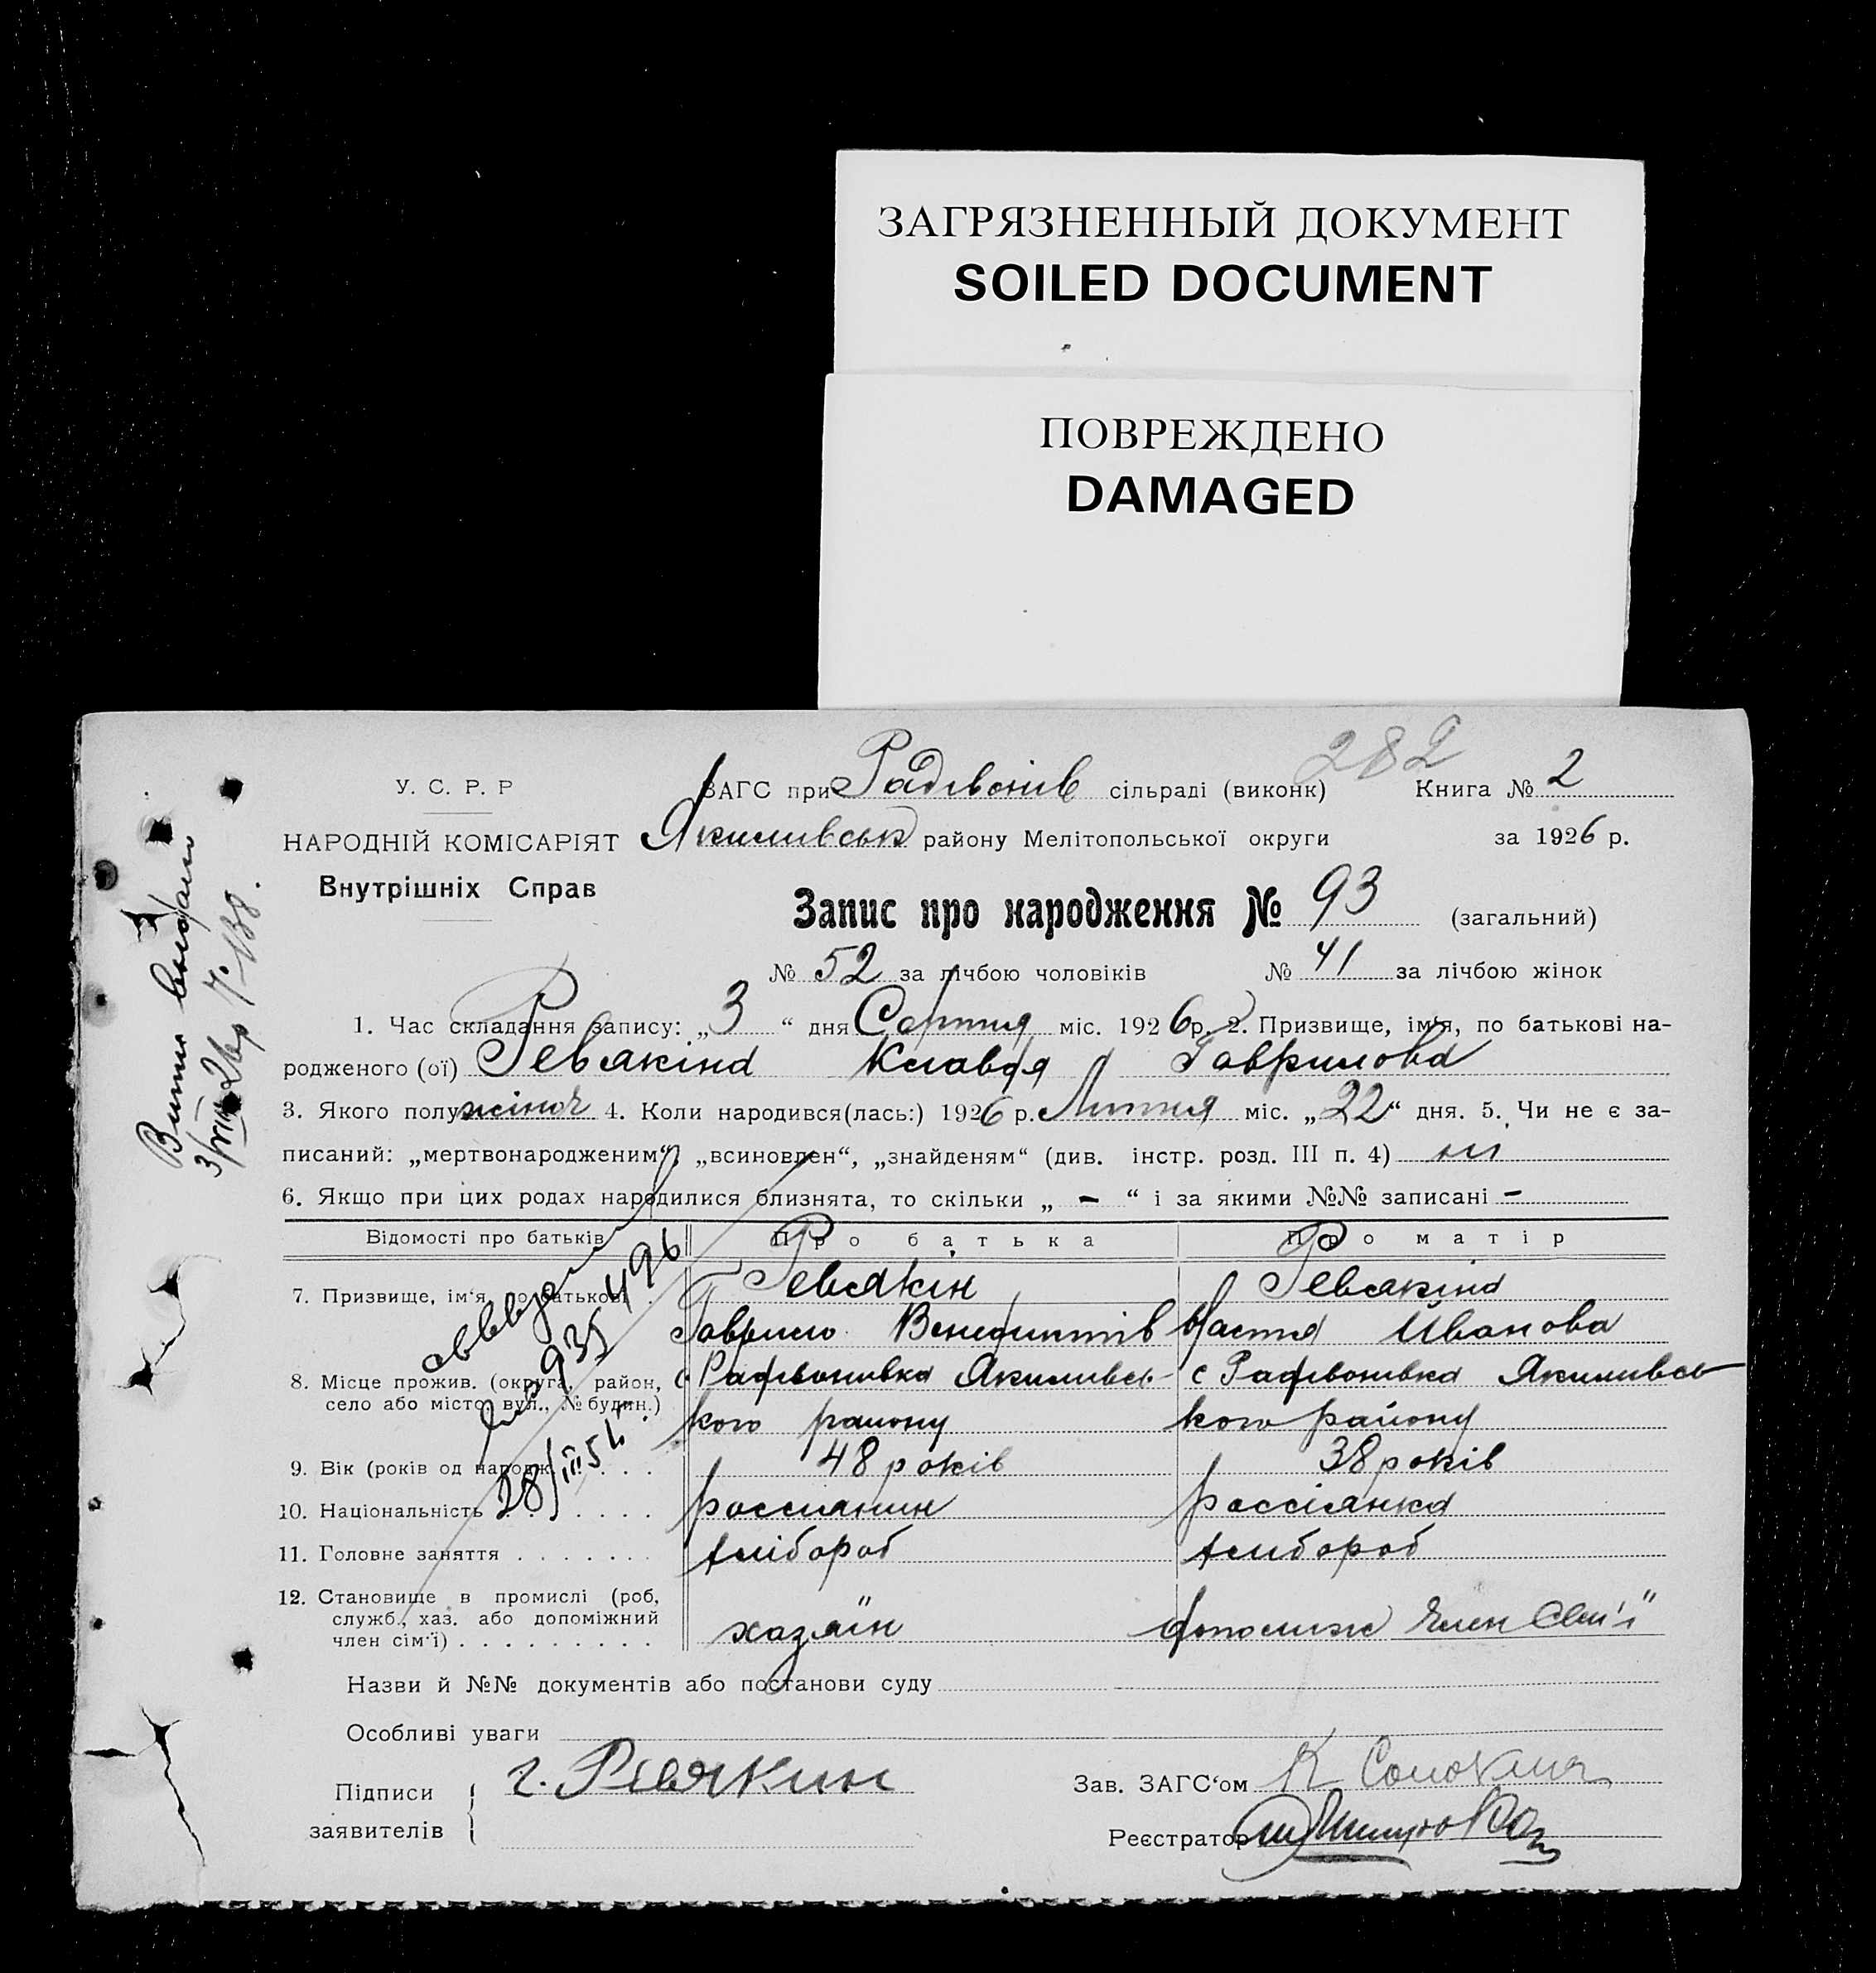 ЗАГРЯЗНЕННЫЙ ДОКУМЕНТ
SOILED DOCUMENT
ПОВРЕЖДЕНО
DAMAGED
282
У. С. Р. Р
ЗАГС при Радивонів сільраді (виконк) Книга № 2
НАРОДНІЙ КОМІСАРІЯТ Якимивськ району Мелітопольської округи за 1926 р.
Внутрішніх Справ
Запис про народження № 93 (загальний)
№ 52 за лічбою чоловіків № 41 за лічбою жінок
1. Час складання запису: „3“ дня Серпня міс. 1926 р. 2. Призвище, ім'я, по батькові на-
родженого (ої) Ревякіна Клавдя Гаврилова
3. Якого полу жіноч 4. Коли народився(лась:) 1926 р. Липня міс. „22“ дня. 5. Чи не є за-
писаний: „мертвонародженим“, „всиновлен“, „знайденям“ (див. інстр. розд. III п. 4) ні
6. Якщо при цих родах народилися близнята, то скільки „ – “ і за якими №№ записані –
Відомості про батьків Про батька Про матір
7. Призвище, ім‘я, по батькові Ревякін Ревякіна
Гаврило Венедиктів Настя Иванова
8. Місце прожив. (округа, район, село або місто, вул., № будин.) с Радивонивка Якимивсь- с Радивонивка Якимивсь
кого району кого району
9. Вік (років од народж. 48 років 38 років
10. Національність россиянин россіянка
11. Головне заняття хлібороб хлибороб
12. Становище в промислі (роб, служб., хаз. або допоміжний член сім‘ї) хазяїн допомиж член Сем'ї
Назви й №№ документів або постанови суду
Особливі уваги
Підписи заявителів г. Ревякин
Зав. ЗАГС‘ом К
Реєстратор
935496
28/III 54.